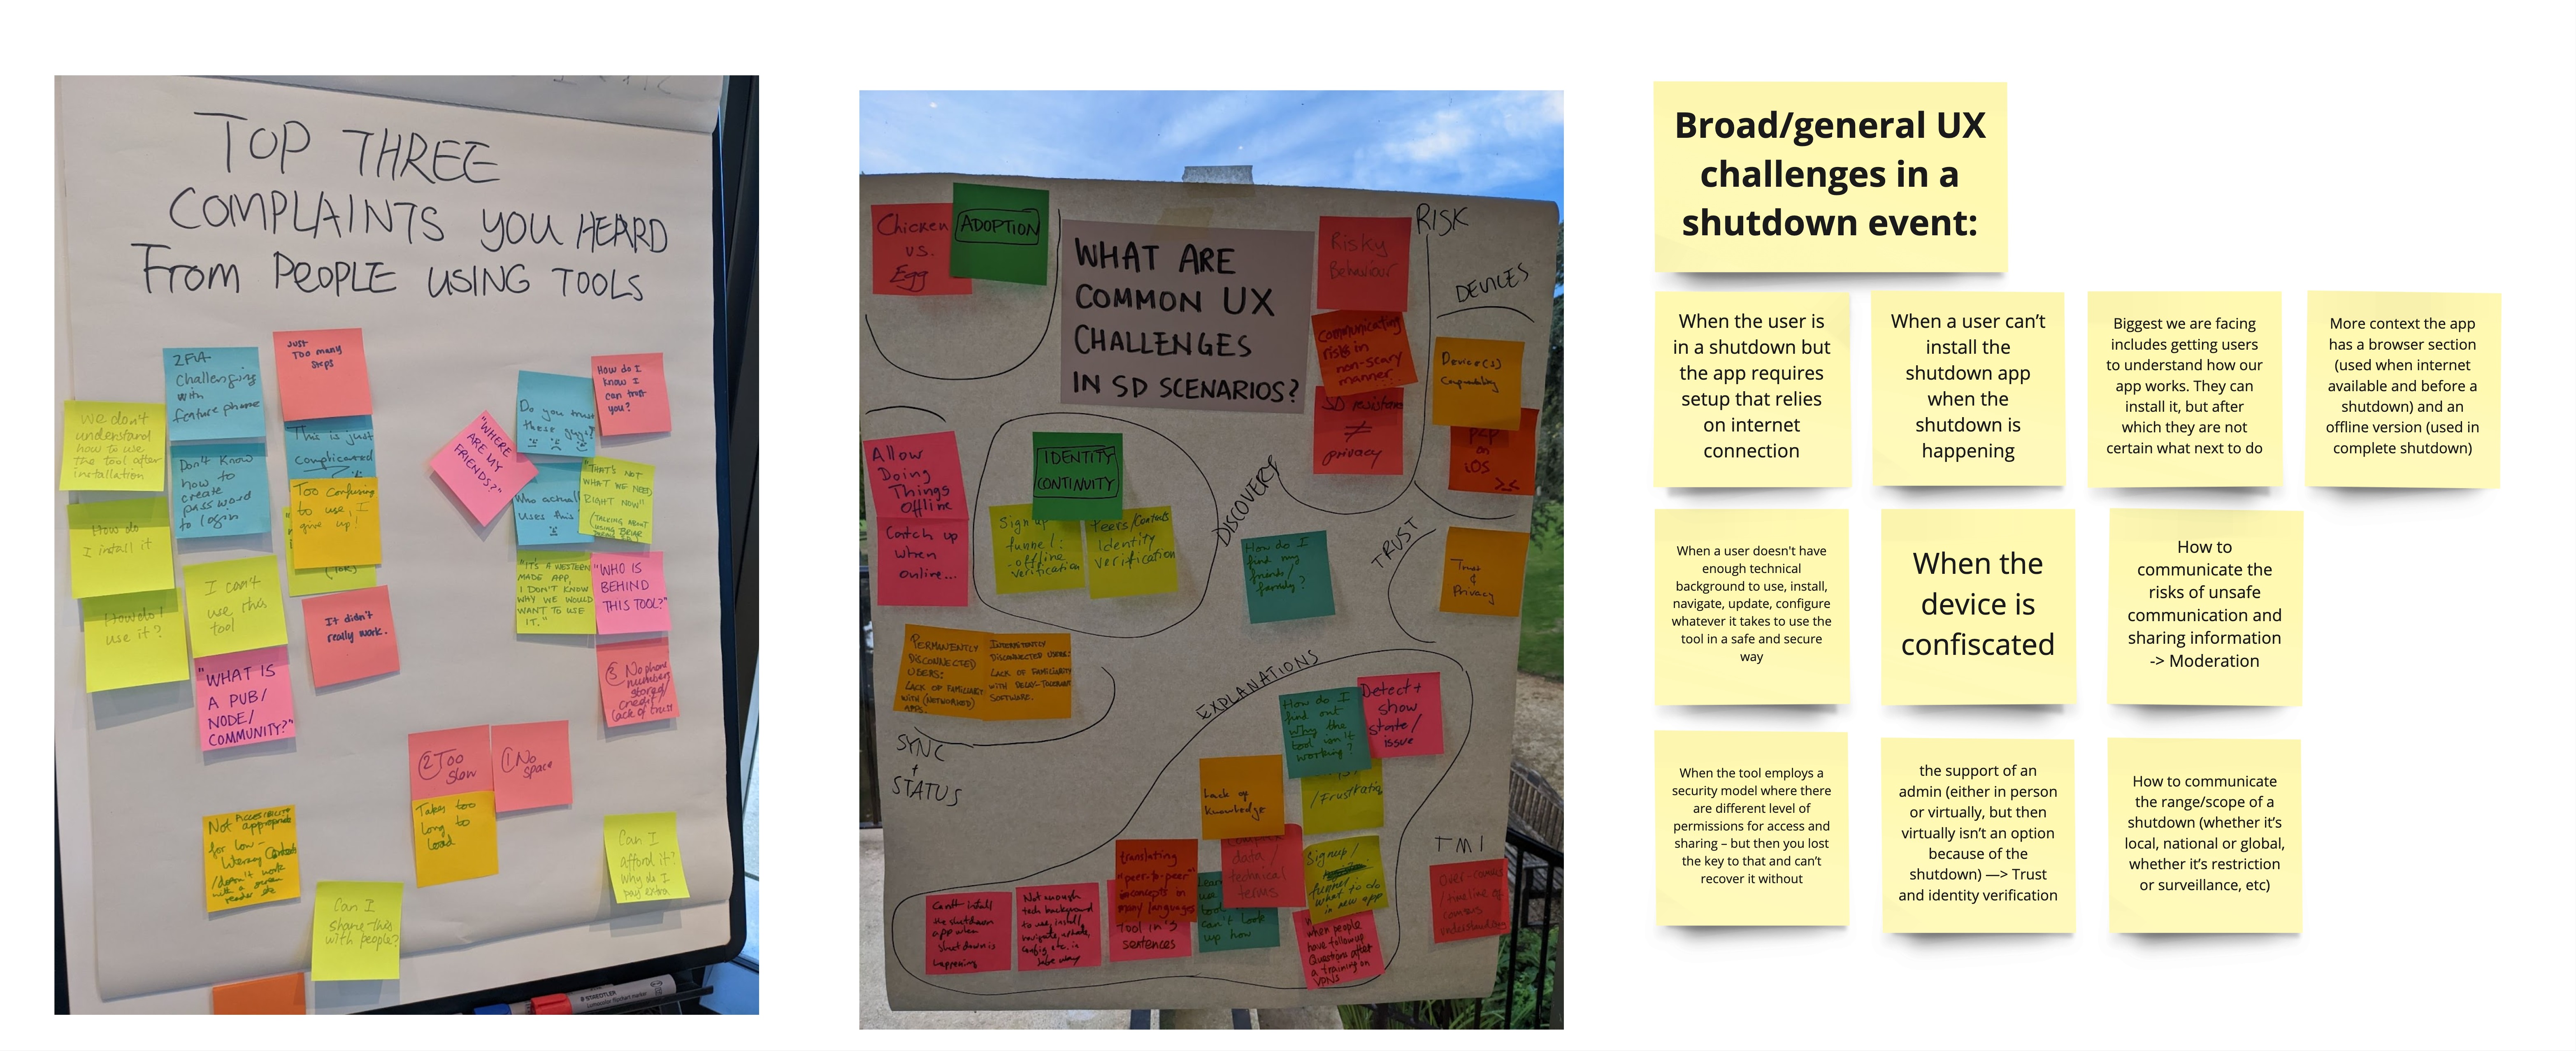 TOP THREE
COMPLAINTS YOU HEARD
From PEOPLE USING TOOLS
We don't
understand
how to use
the tool after
installation
2FA
Challenging
with
feature phone
Just
Too many
Steps
This is just
complicated
Don't know
how to
create
password
to login
Too confusing
to use, I
give up!
How do
I install it
I can't
use this
tool
How do I
use it?
It didn't
really work.
"WHAT IS
A PUB/
NODE/
COMMUNITY?"
"WHERE
ARE MY
FRIENDS?"
Do you trust
these guys?
How do I
know I
can trust
you?
Who actually
uses this
"THAT'S NOT
WHAT WE NEED
RIGHT NOW"
(TALKING ABOUT
USING BRIAR
"IT'S A WESTERN
MADE APP,
I DON'T KNOW
WHY WE WOULD
WANT TO USE
IT."
"WHO IS
BEHIND
THIS TOOL?"
③ No phone
numbers
stored/
credit/
lack of trust
② Too
slow
① No
space
Takes too
long to
load
Not appropriate
for low-
literacy
Can I
share this
with people?
Can I
afford it?
Why do I
pay extra
STAEDTLER
Chicken
vs.
Egg
ADOPTION
WHAT ARE
COMMON UX
CHALLENGES
IN SD SCENARIOS?
Risky
Behaviour
RISK
Communicating
risks in
non-scary
manner
SD resistant
≠
privacy
DEVICES
Device(s)
Compatibility
P2P
on
iOS
>_<
Allow
Doing
Things
Offline
Catch up
when
online...
IDENTITY
CONTINUITY
Sign up
funnel:
- offline
verification
Peers/Contacts
Identity
verification
DISCOVERY
How do I
find my
friends/
family?
TRUST
Trust
&
Privacy
PERMANENTLY
DISCONNECTED
USERS:
LACK OF FAMILIARITY
WITH (NETWORKED)
APPS.
INTERMITTENTLY
DISCONNECTED USERS:
LACK OF FAMILIARITY
WITH DELAY-TOLERANT
SOFTWARE.
SYNC
+
STATUS
EXPLANATIONS
How do I
find out
why the
tool isn't
working?
Detect +
show
state/
issue
Lack of
knowledge
/Frustration
TMI
translating
"peer-to-peer"
concepts in
many languages
Tool in 3
sentences
data/
technical
terms
Signup/
funnel
what to do
in new app
Can't install
the shutdown
app when
shutdown is
happening
Not enough
tech background
to use, install,
navigate, update,
config etc. in
safe way
can't look
up how
when people
have followup
Questions after
a training on
VPNs
Broad/general UX
challenges in a
shutdown event:
When the user is
in a shutdown but
the app requires
setup that relies
on internet
connection
When a user can't
install the
shutdown app
when the
shutdown is
happening
Biggest we are facing
includes getting users
to understand how our
app works. They can
install it, but after
which they are not
certain what next to do
More context the app
has a browser section
(used when internet
available and before a
shutdown) and an
offline version (used in
complete shutdown)
When a user doesn't have
enough technical
background to use, install,
navigate, update, configure
whatever it takes to use the
tool in a safe and secure
way
When the
device is
confiscated
How to
communicate the
risks of unsafe
communication and
sharing information
-> Moderation
When the tool employs a
security model where there
are different level of
permissions for access and
sharing – but then you lost
the key to that and can't
recover it without
the support of an
admin (either in person
or virtually, but then
virtually isn't an option
because of the
shutdown) —> Trust
and identity verification
How to communicate
the range/scope of a
shutdown (whether it's
local, national or global,
whether it's restriction
or surveillance, etc)